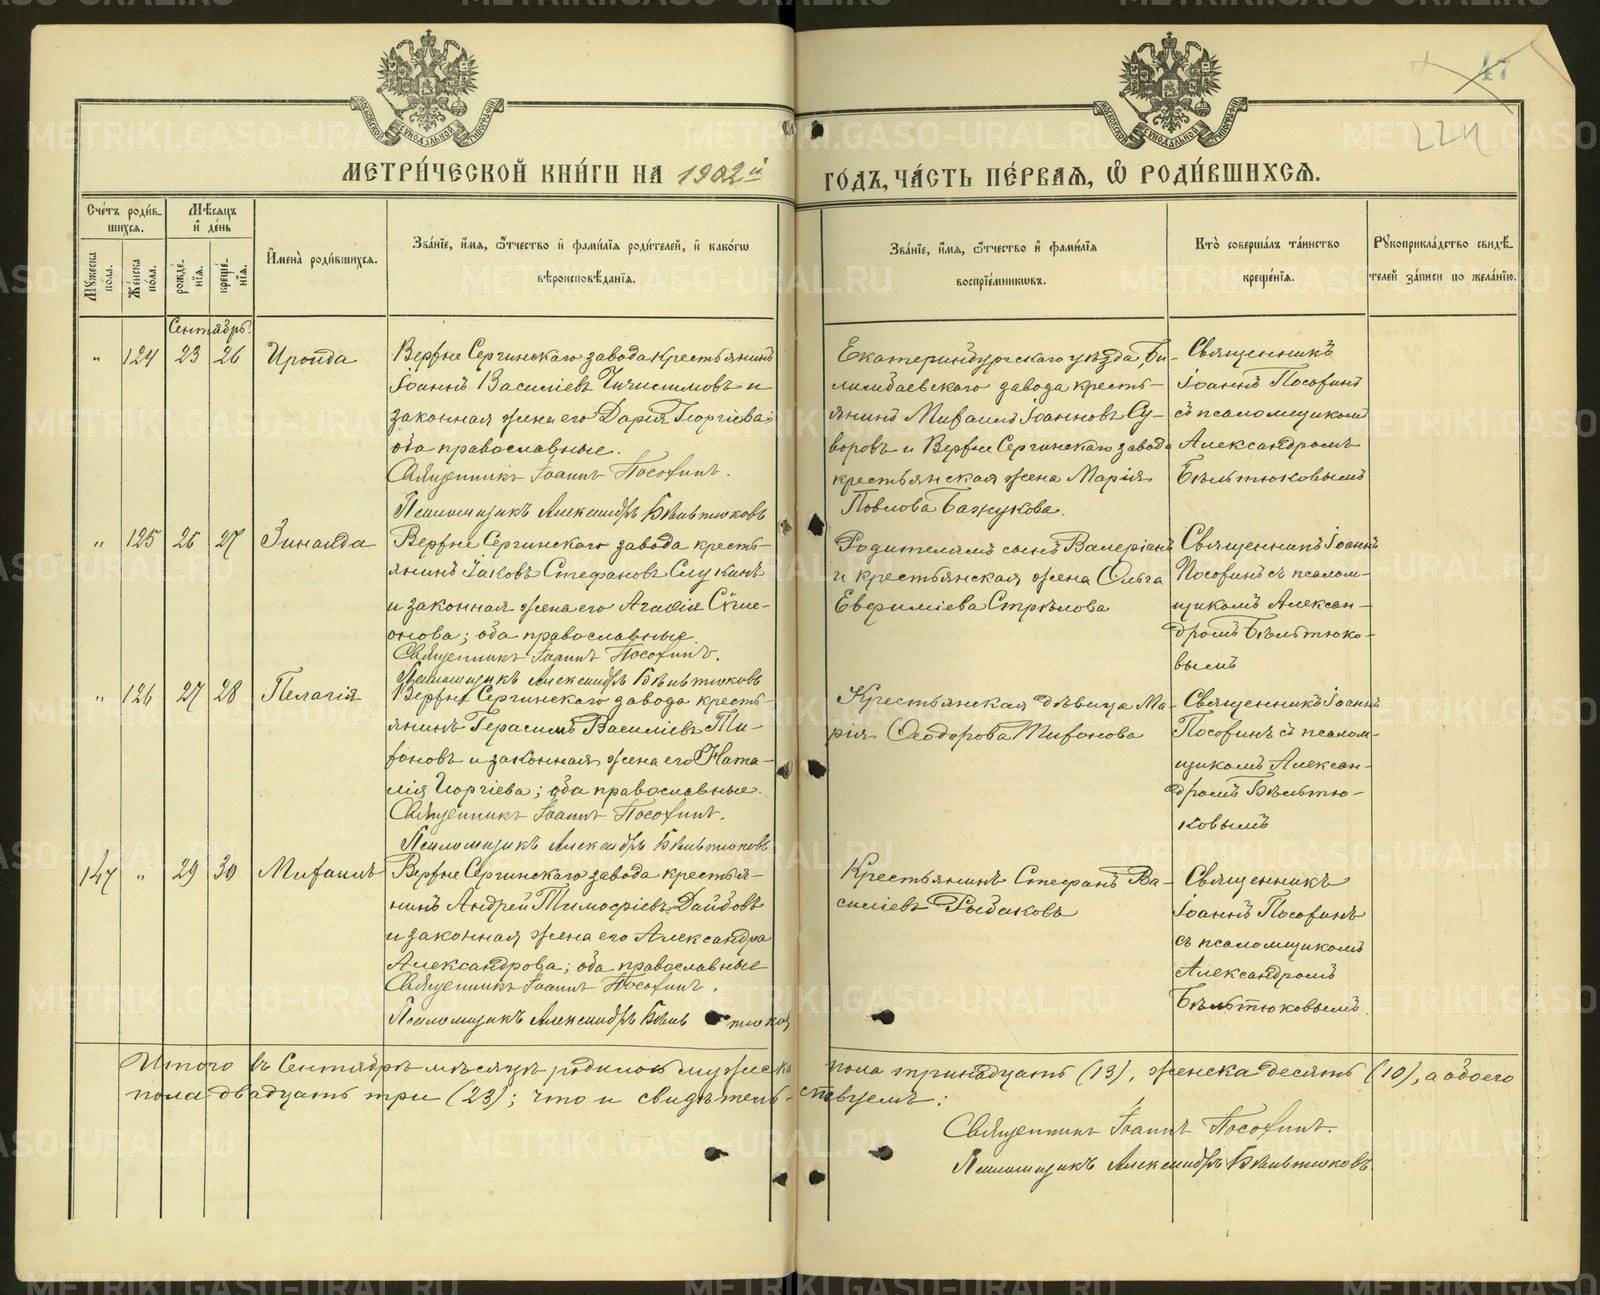 МЕТРИ́ЧЕСКОЙ КНИ́ГИ НА 1902й ГОДЪ, ЧА́СТЬ ПЕ́РВАЯ, Ѡ РОДИ́ВШИХСЯ.
47
224
Сче́тъ роди́в-
шихся.
Му́жеска пола.
Же́нска пола.
Мѣсяцъ
и де́нь
рожде́нїя.
креще́нїя.
И́мена̀ роди́вшихся.
Зва́нїе, и́мя, ѻ҆́тчество и фами́лїя роди́телей, и како́гѡ
вѣроисповѣ́данїя.
Зва́нїе, и́мя, ѻ҆́тчество и фами́лїя
воспрїе́мникѡвъ.
Кто̀ соверша́лъ та́инство
креще́нїя.
Рꙋкоприкла́дство свидѣ́-
телей за́писи по жела́нїю.
Сентябрь.
" 124 23 26 Ироида
Верхне Сергинскаго завода крестьянинъ
Іоаннъ Василіевъ Чичисимовъ и
законная жена его Дарія Георгіева;
оба православные.
Священникъ Іоаннъ Пособинъ.
Псаломщикъ Александръ Бѣльтюковъ
Екатеринбургскаго уѣзда, Би-
лимбаевскаго завода кресть-
янинъ Михаилъ Іоанновъ Су-
воровъ и Верхне Сергинскаго завода
крестьянская жена Марія
Павлова Бажукова.
Священникъ
Іоаннъ Пособинъ
съ псаломщикомъ
Александромъ
Бѣльтюковымъ
" 125 25 27 Зинаида
Верхне Сергинскаго завода кресть-
янинъ Іаковъ Стефановъ Слукинъ
и законная жена его Агафія Симе-
онова; оба православные.
Священникъ Іоаннъ Пособинъ.
Псаломщикъ Александръ Бѣльтюковъ
Родителямъ сынъ Валеріанъ
и крестьянская жена Ольга
Евфиміева Стрѣлова
Священникъ Іоаннъ
Пособинъ съ псалом-
щикомъ Алексан-
дромъ Бѣльтюко-
вымъ
" 126 27 28 Пелагія
Верхне Сергинскаго завода кресть-
янинъ Герасимъ Василіевъ Ти-
хоновъ и законная жена его Ната-
лія Георгіева; оба православные.
Священникъ Іоаннъ Пособинъ.
Псаломщикъ Александръ Бѣльтюковъ
Крестьянская дѣвица Ма-
рія Ѳеодорова Тихонова
Священникъ Іоаннъ
Пособинъ съ псалом-
щикомъ Алексан-
дромъ Бѣльтю-
ковымъ
147 " 29 30 Михаилъ
Верхне Сергинскаго завода крестья-
нинъ Андрей Тимофіевъ Дайбовъ
и законная жена его Александра
Александрова; оба православные
Священникъ Іоаннъ Пособинъ.
Псаломщикъ Александръ Бѣльтюковъ
Крестьянинъ Стефанъ Ва-
силіевъ Рыбаковъ
Священникъ
Іоаннъ Пособинъ
съ псаломщикомъ
Александромъ
Бѣльтюковымъ.
Итого въ Сентябрѣ мѣсяцѣ родилось мужеска пола тринадцать (13), женска десять (10), а обоего
пола двадцать три (23); что и свидѣтельствуемъ:
Священникъ Іоаннъ Пособинъ.
Псаломщикъ Александръ Бѣльтюковъ.
METRIKI.GASO-URAL.RU